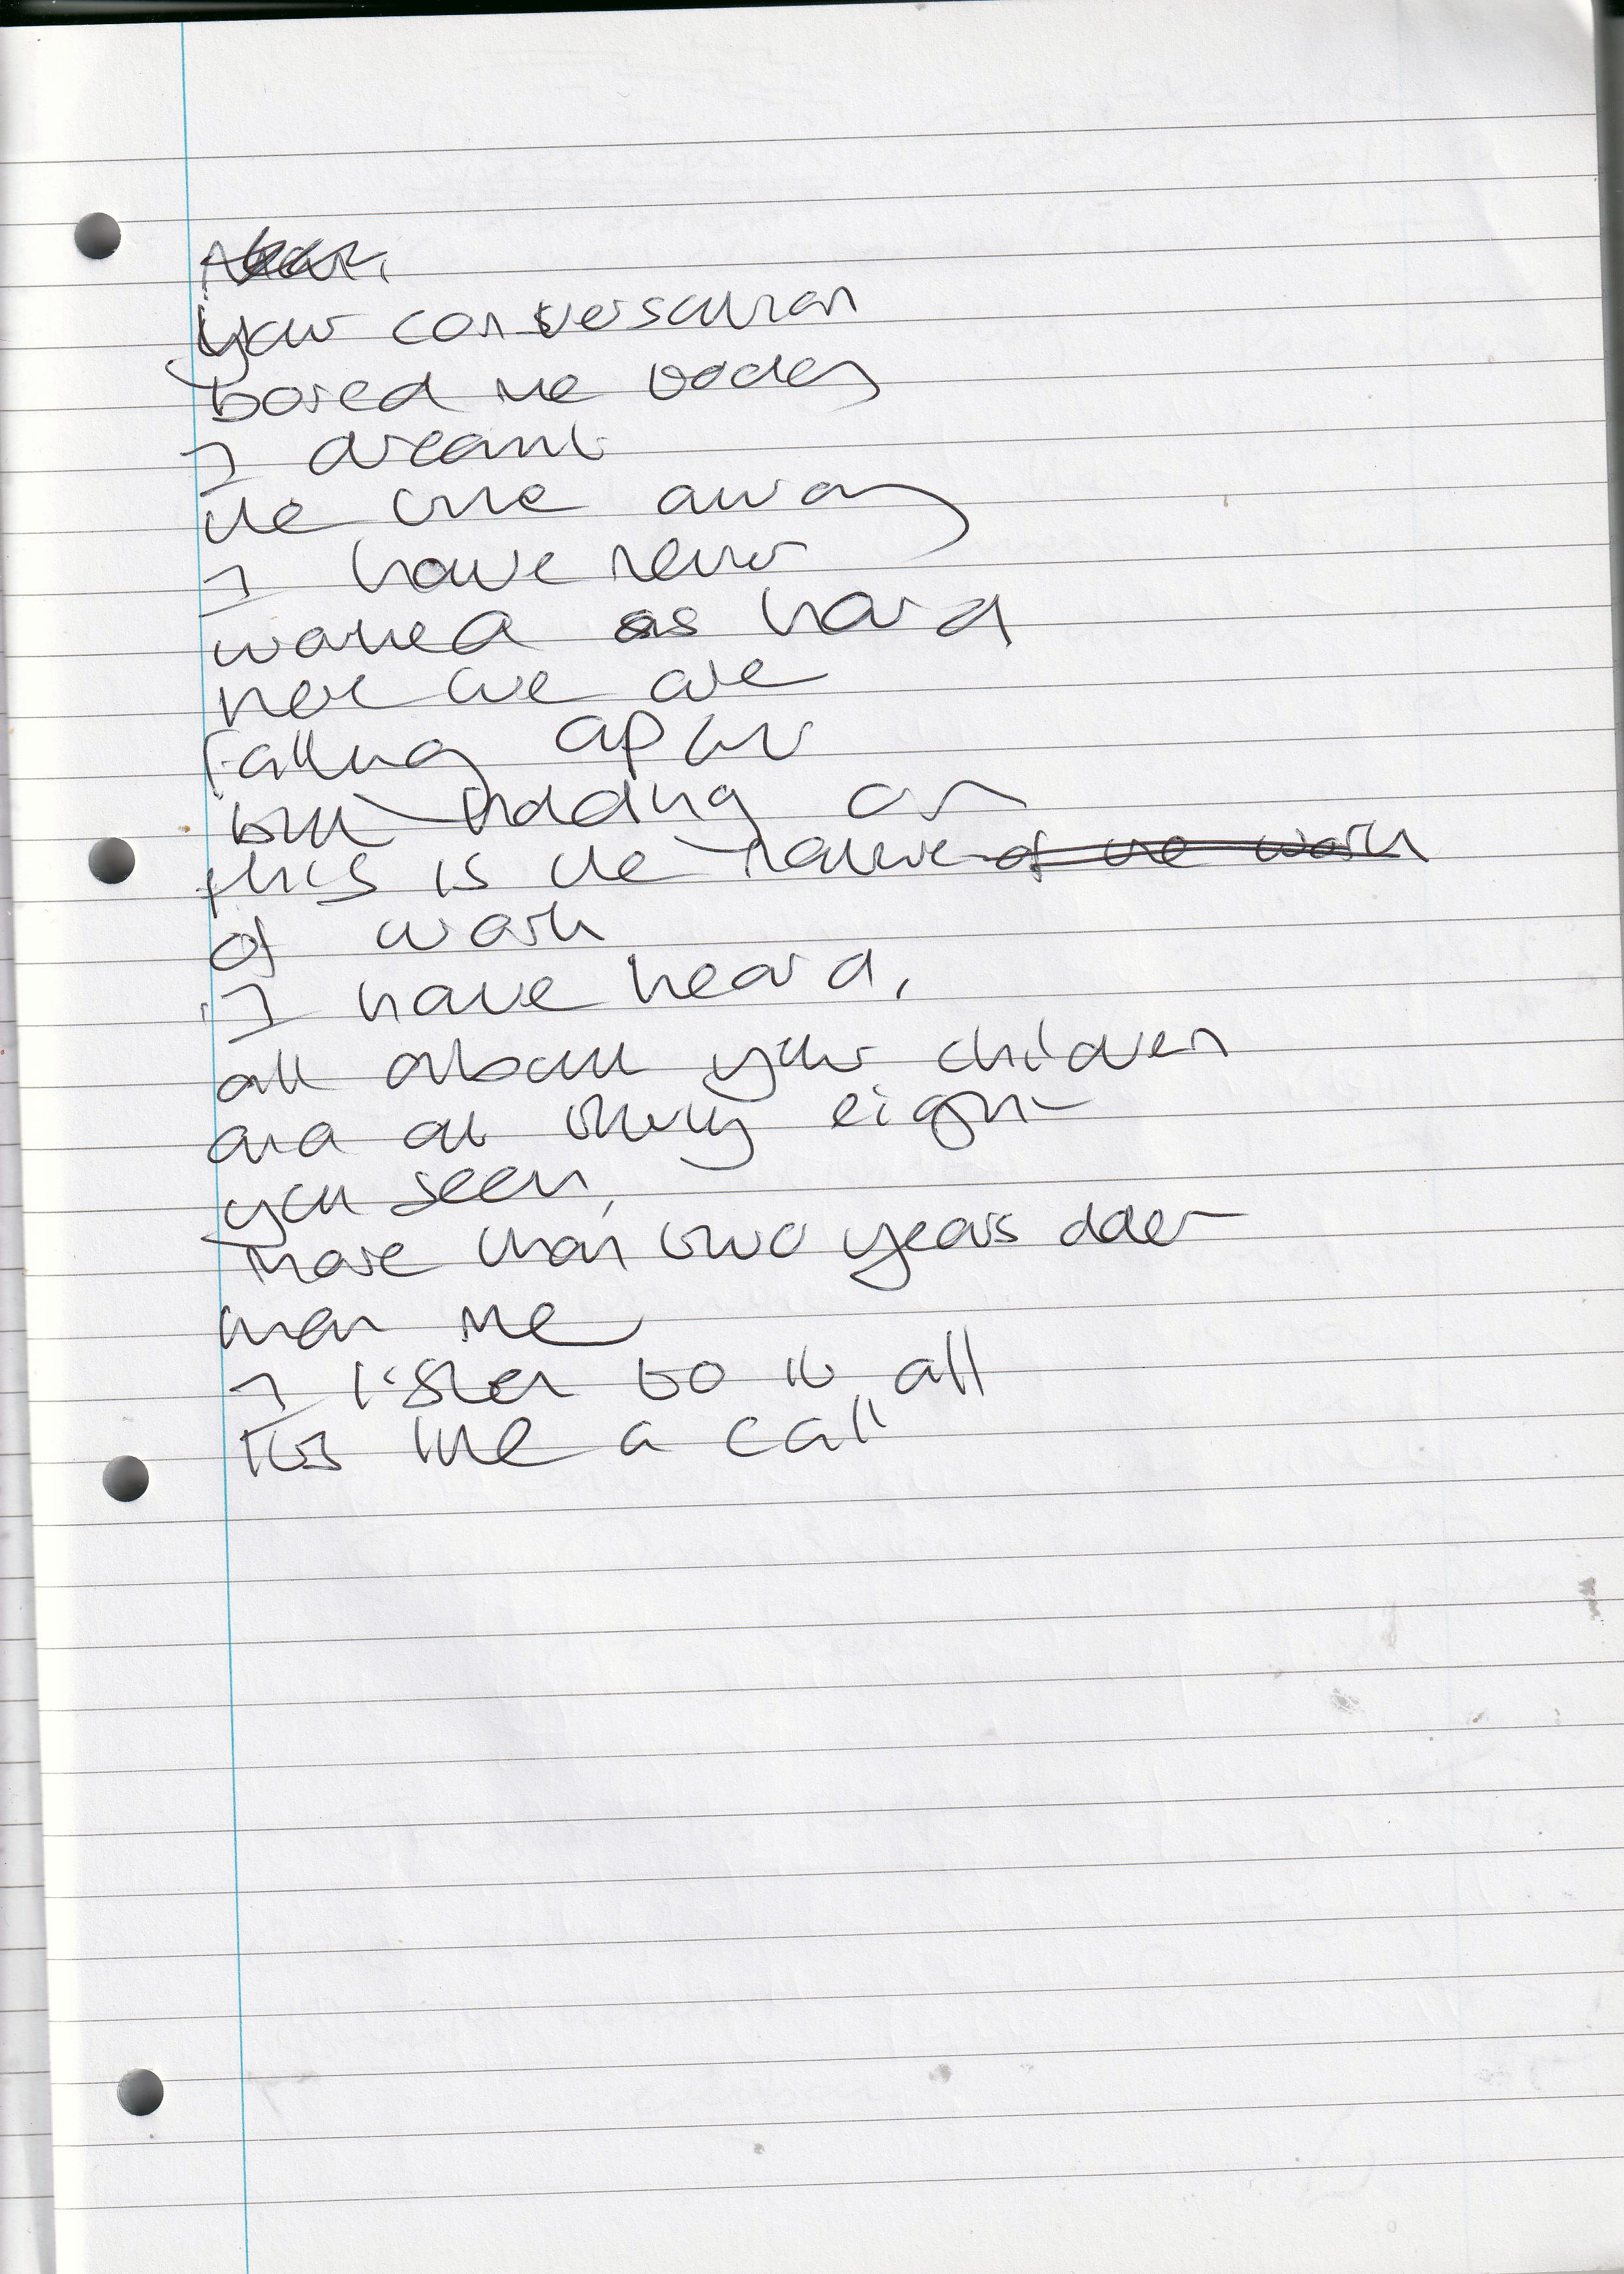 your conversation
bored me today
I dreamt
the time away
I have never
worked as hard
here we are
falling apart
but holding on
this is the nature ~~of the work~~
of work
I have heard,
all about your children
and at thirty eight
you seem,
more than two years older
than me
I listen to it all
its like a call